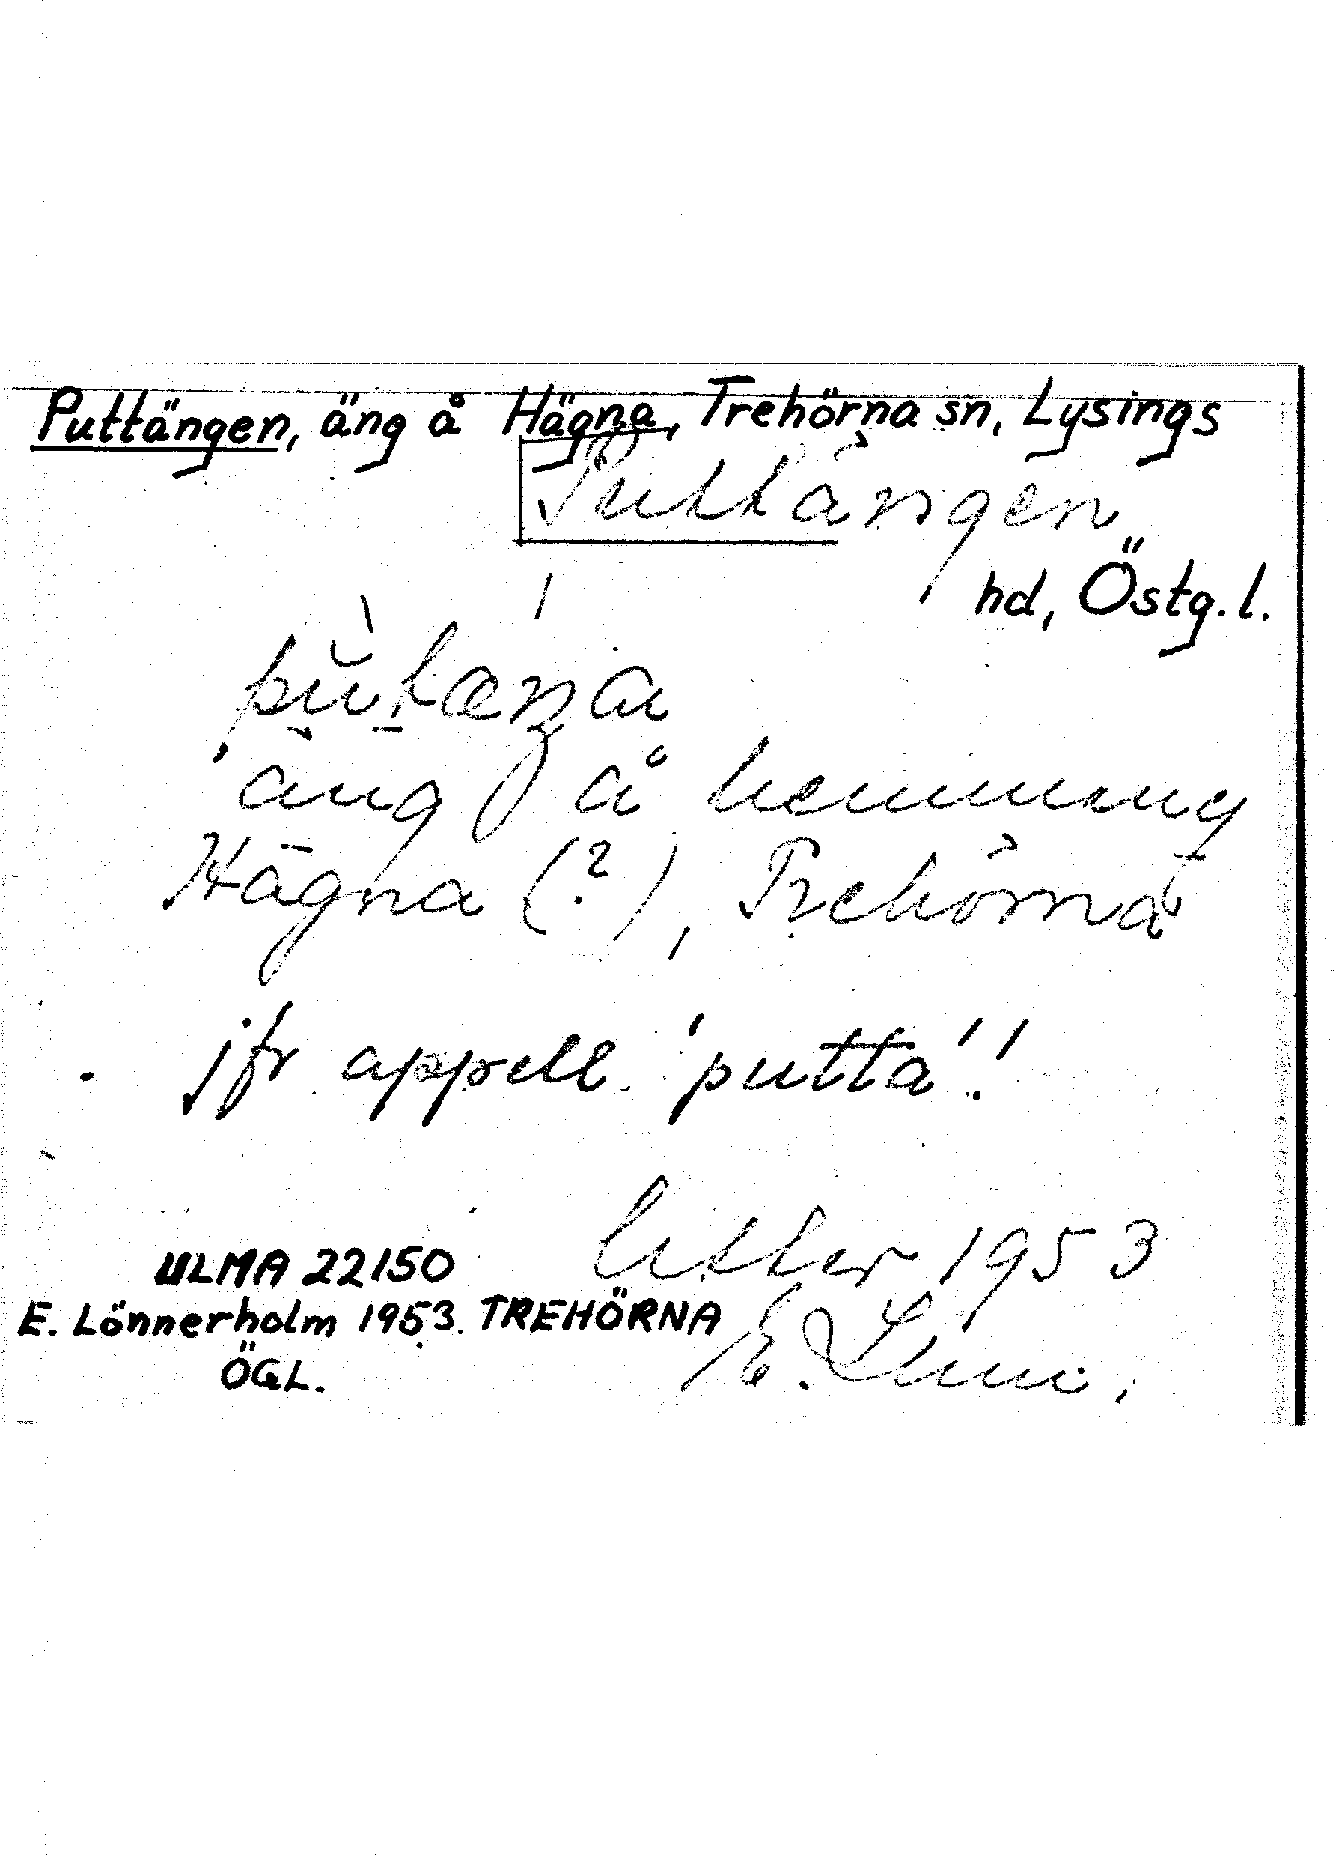 Puttängen, äng å Hägna, Trehörna sn, Lysings
Puttängen
hd, Östg.l.
äng å hemmang
Hägna (?), Trehörna
jfr appell. 'putta'!
1953
ULMA 22150
E. Lönnerholm 1953. TREHÖRNA
ÖGL.